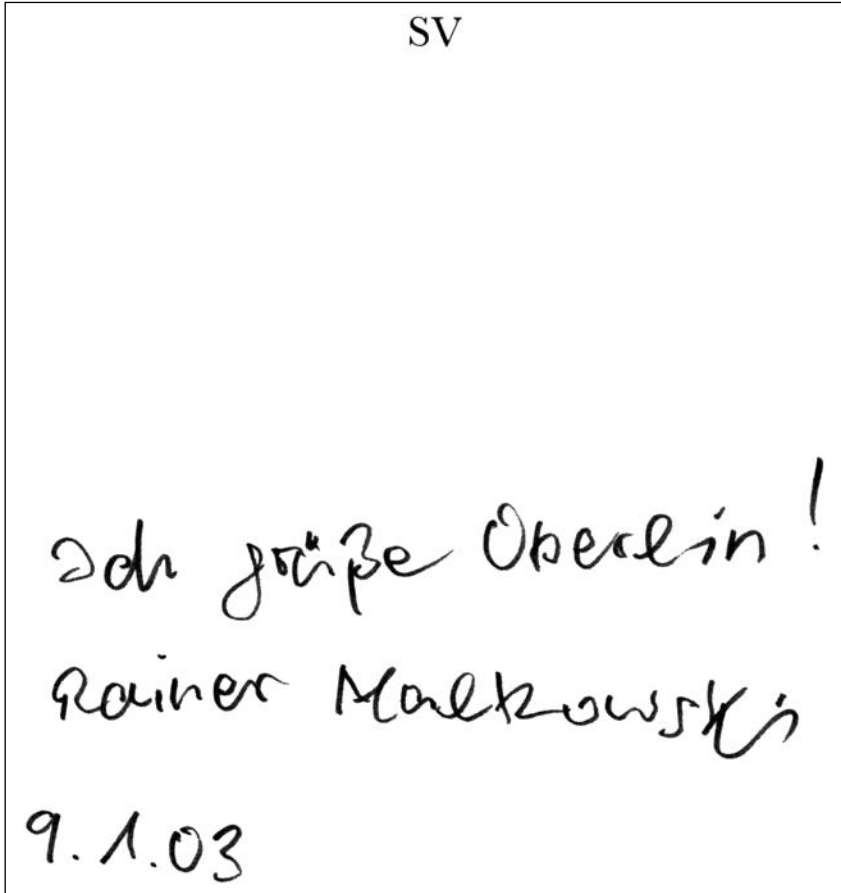 SV
Ich grüße Oberlin!
Rainer Malkowski
9.1.03